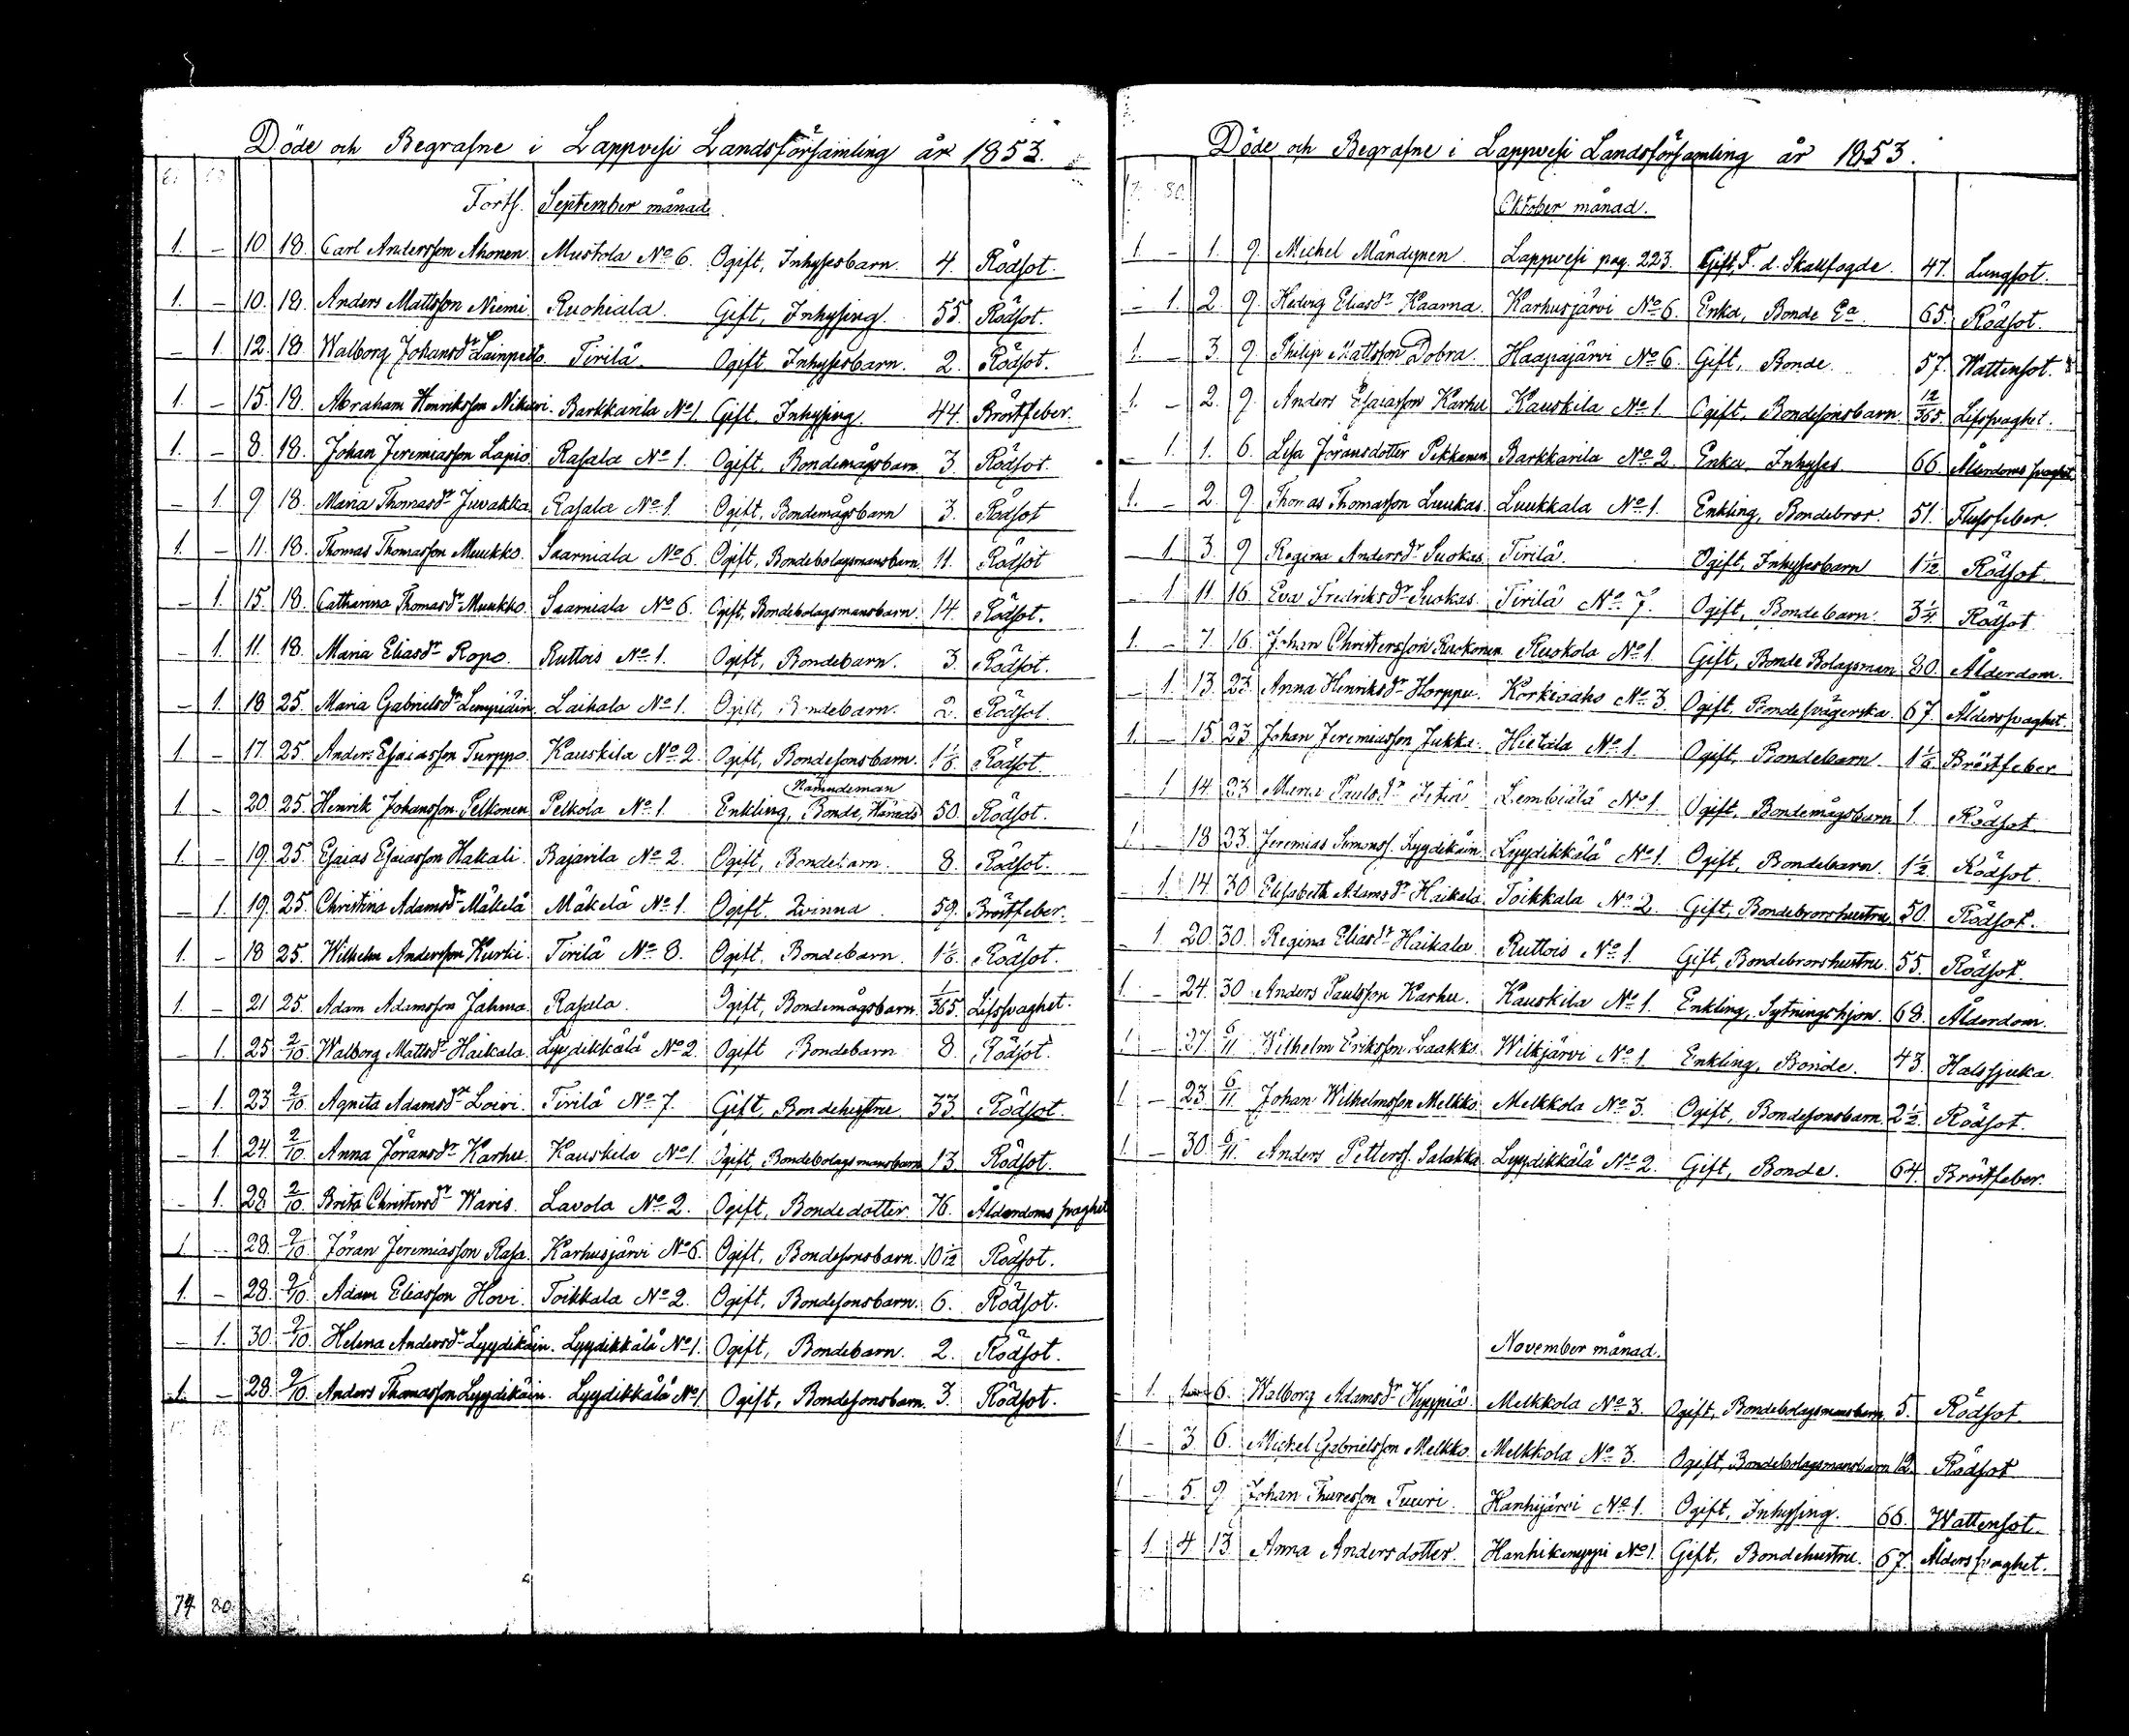 Döde och Begrafne i Lappvesi Landsförsamling år 1853.
Forts. September månad.
1. – 10. 18. Carl Andersson Ahonen. Mustola No 6. Ogift, Inhysesbarn. 4. Rödsot.
1. – 10. 18. Anders Mattsson Niemi. Ruohiala. Gift, Inhysing. 55. Rödsot.
– 1. 12. 18. Walborg Johansdr Tirilä. Ogift Inhysesbarn. 2. Rödsot.
1. – 15. 18. Abraham Henriksson Nikari. Barkkarila No 1. Gift, Inhysing. 44. Bröstfeber.
1. – 8. 18. Johan Jeremiasson Lapio. Rasala No 1. Ogift, Bondemågsbarn. 3. Rödsot.
– 1. 9. 18. Maria Thomasdr Juvakka. Rasala No 1. Ogift, Bondemågsbarn 3. Rödsot
1. – 11. 18. Thomas Thomasson Muukko. Saarniala No 6. Ogift, Bondebolagsmansbarn. 11. Rödsot
– 1. 15. 18. Catharina Thomasdr Muukko. Saarniala No 6. Ogift, Bondebolagsmansbarn. 14. Rödsot.
– 1. 11. 18. Maria Eliasdr Ropo. Ruttois No 1. Ogift, Bondebarn. 3. Rödsot.
– 1. 18 25. Maria Gabrielsdr Lempiäin. Laihala No 1. Ogift, Bondebarn. 2. Rödsot.
1. – 17. 25. Anders Esaiasson Turppo. Kauskila No 2. Ogift, Bondesonsbarn. Rödsot.
Nämndeman
1. – 20. 25. Henrik Johansson Pelkonen Pelkola No 1. Enkling, Bonde, Härads 50. Rödsot.
1. – 19. 25. Esaias Esaiasson Hakali. Bajarila No 2. Ogift, Bondebarn. 8. Rödsot.
– 1. 19. 25. Christina Adamsdr Mäkelä Mäkelä No 1. Ogift Qvinna. 59. Bröstfeber.
1. – 18 25. Wilhelm Andersson Kurki. Tirilä No 8. Ogift, Bondebarn. Rödsot.
1. – 21 25. Adam Adamsson Jahma. Rasala. Ogift, Bondemågsbarn. 1/365. Lifssvaghet.
– 1. 25 2/10. Walborg Mattsdr Haikala. Lyydikkälä No 2. Ogift Bondebarn 8. Rödsot.
– 1. 23 2/10. Agneta Adamsdr Loivi. Tirilä No 7. Gift, Bondehustru 33. Rödsot.
– 1. 24. 2/10. Anna Jöransdr Karhu. Kauskila No 1. Ogift, Bondebolagsmansbarn 13. Rödsot.
– 1. 28. 2/10. Brita Christersdr Waris. Lavola No 2. Ogift, Bondedotter. 76. Ålderdoms svaghet
1. – 28. 2/10. Jöran Jeremiasson Rasa. Karhusjärvi No 6. Ogift, Bondesonsbarn. 10/12 Rödsot.
1. – 28. 2/10. Adam Eliasson Hovi. Toikkala No 2. Ogift, Bondesonsbarn. 6. Rödsot.
– 1. 30. 2/10. Helena Andersdr Lyydikäin. Lyydikkälä No 1. Ogift, Bondebarn. 2. Rödsot.
1. – 28. 2/10. Anders Thomasson Lyydikäin. Lyydikkälä No 1. Ogift, Bondesonsbarn. 3. Rödsot.
74 80
Döde och Begrafne i Lappvesi Landsförsamling år 1853.
Oktober månad.
1. – 1. 9. Michel Mändynen. Lappvesi pag. 223. Gift, F. d. Skallfogde. 47. Lungsot.
– 1. 2. 9. Hedvig Eliasdr Kaarna. Karhusjärvi No 6. Enka, Bonde Ea. 65. Rödsot.
1. – 3. 9. Philip Mattsson Dobra. Haapajärvi No 6. Gift, Bonde. 57. Wattensot.
1. – 2. 9. Anders Esaiasson Karhu Kauskila No 1. Ogift, Bondesonsbarn. 12/365. Lifssvaghet.
– 1. 1. 6. Lisa Jöransdotter Pekkanen Barkkarila No 2. Enka, Inhyses 66. Ålderdoms svaghet
1. – 2. 9. Thomas Thomasson Luukas. Luukkala No 1. Enkling, Bondebror. 51. Flussfeber.
– 1. 3. 9 Regina Andersdr Suokas. Tirilä. Ogift, Inhysesbarn 1 1/12 Rödsot.
– 1. 11 16. Eva Fredriksdr Suokas. Tirilä No 7. Ogift, Bondebarn. 3 1/4. Rödsot
1. – 7. 16. Johan Christersson Ruokonen Ruokola No 1. Gift, Bonde Bolagsman. 80. Ålderdom.
– 1. 13. 23. Anna Henriksdr Horppu. Korkiaaho No 3. Ogift, Bondesvägerska. 67. Ålderssvaghet.
1. – 15. 23 Johan Jeremiasson Jukka. Hietala No 1. Ogift, Bondebarn. Bröstfeber
– 1 14. 23 Maria Paulsdr Itiä Lembiälä No 1. Ogift, Bondemågsbarn 1. Rödsot.
1. – 18 23. Jeremias Simonss. Lyydikäin. Lyydikkälä No 1. Ogift, Bondebarn. 1 1/2 Rödsot.
– 1. 14. 30 Elisabeth Adamsdr Haikala. Toikkala No 2. Gift, Bondebrorshustru. 50. Rödsot.
– 1. 20 30. Regina Eliasdr Haikala Ruttois No 1. Gift, Bondebrorshustru. 55. Rödsot.
1. – 24. 30 Anders Paulsson Karhu. Kauskila No 1. Enkling, Sytningshjon. 68. Ålderdom.
1. – 27. 6/11 Wilhelm Eriksson Laakko. Wilkjärvi No 1. Enkling, Bonde. 43. Halssjuka.
1. – 23. 6/11. Johan Wilhelmsson Melkko. Melkkola No 3. Ogift, Bondesonsbarn. 2 1/2. Rödsot.
1. – 30. 6/11. Anders Petterss. Salakka Lyydikkälä No 2. Gift, Bonde. 64. Bröstfeber.
November månad.
– 1. 1 6. Walborg Adamsdr Hyppiä. Melkkola No 3. Ogift, Bondebolagsmansbarn 5. Rödsot
1 – 3. 6. Michel Gabrielsson Melkko. Melkkola No 3. Ogift, Bondebolagsmansbarn 12. Rödsot
1 – 5. 9. Johan Thuresson Tuuri. Hanhijärvi No 1. Ogift, Inhysing. 66. Wattensot.
– 1. 4. 13. Anna Andersdotter. Hanhikemppi No 1. Gift, Bondehustru. 67. Ålderssvaghet.